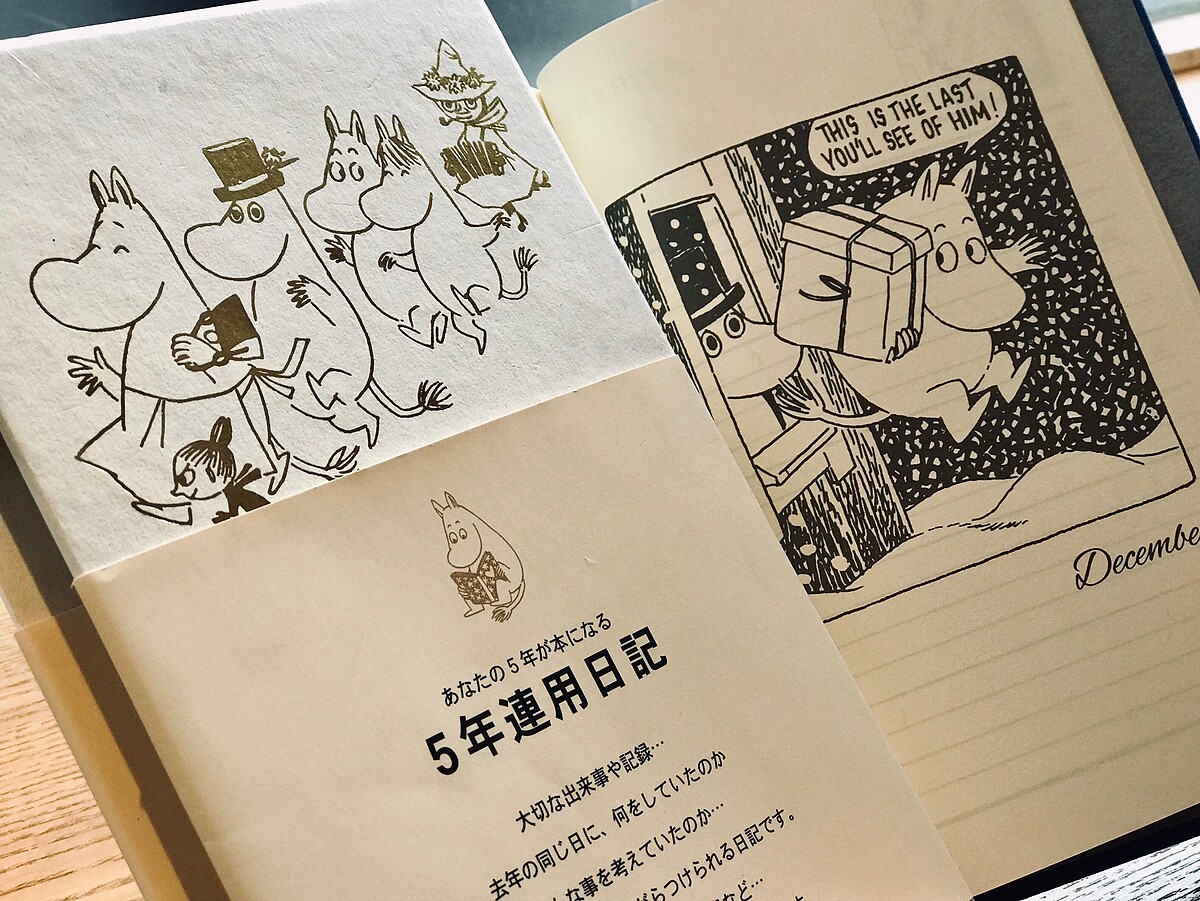 THIS IS THE LAST
YOU'LL SEE OF HIM!
あなたの5年が本になる
5年連用日記
大切な出来事や記録…
去年の同じ日に、何をしていたのか
な事を考えていたのか…
がらつけられる日記です。
など…